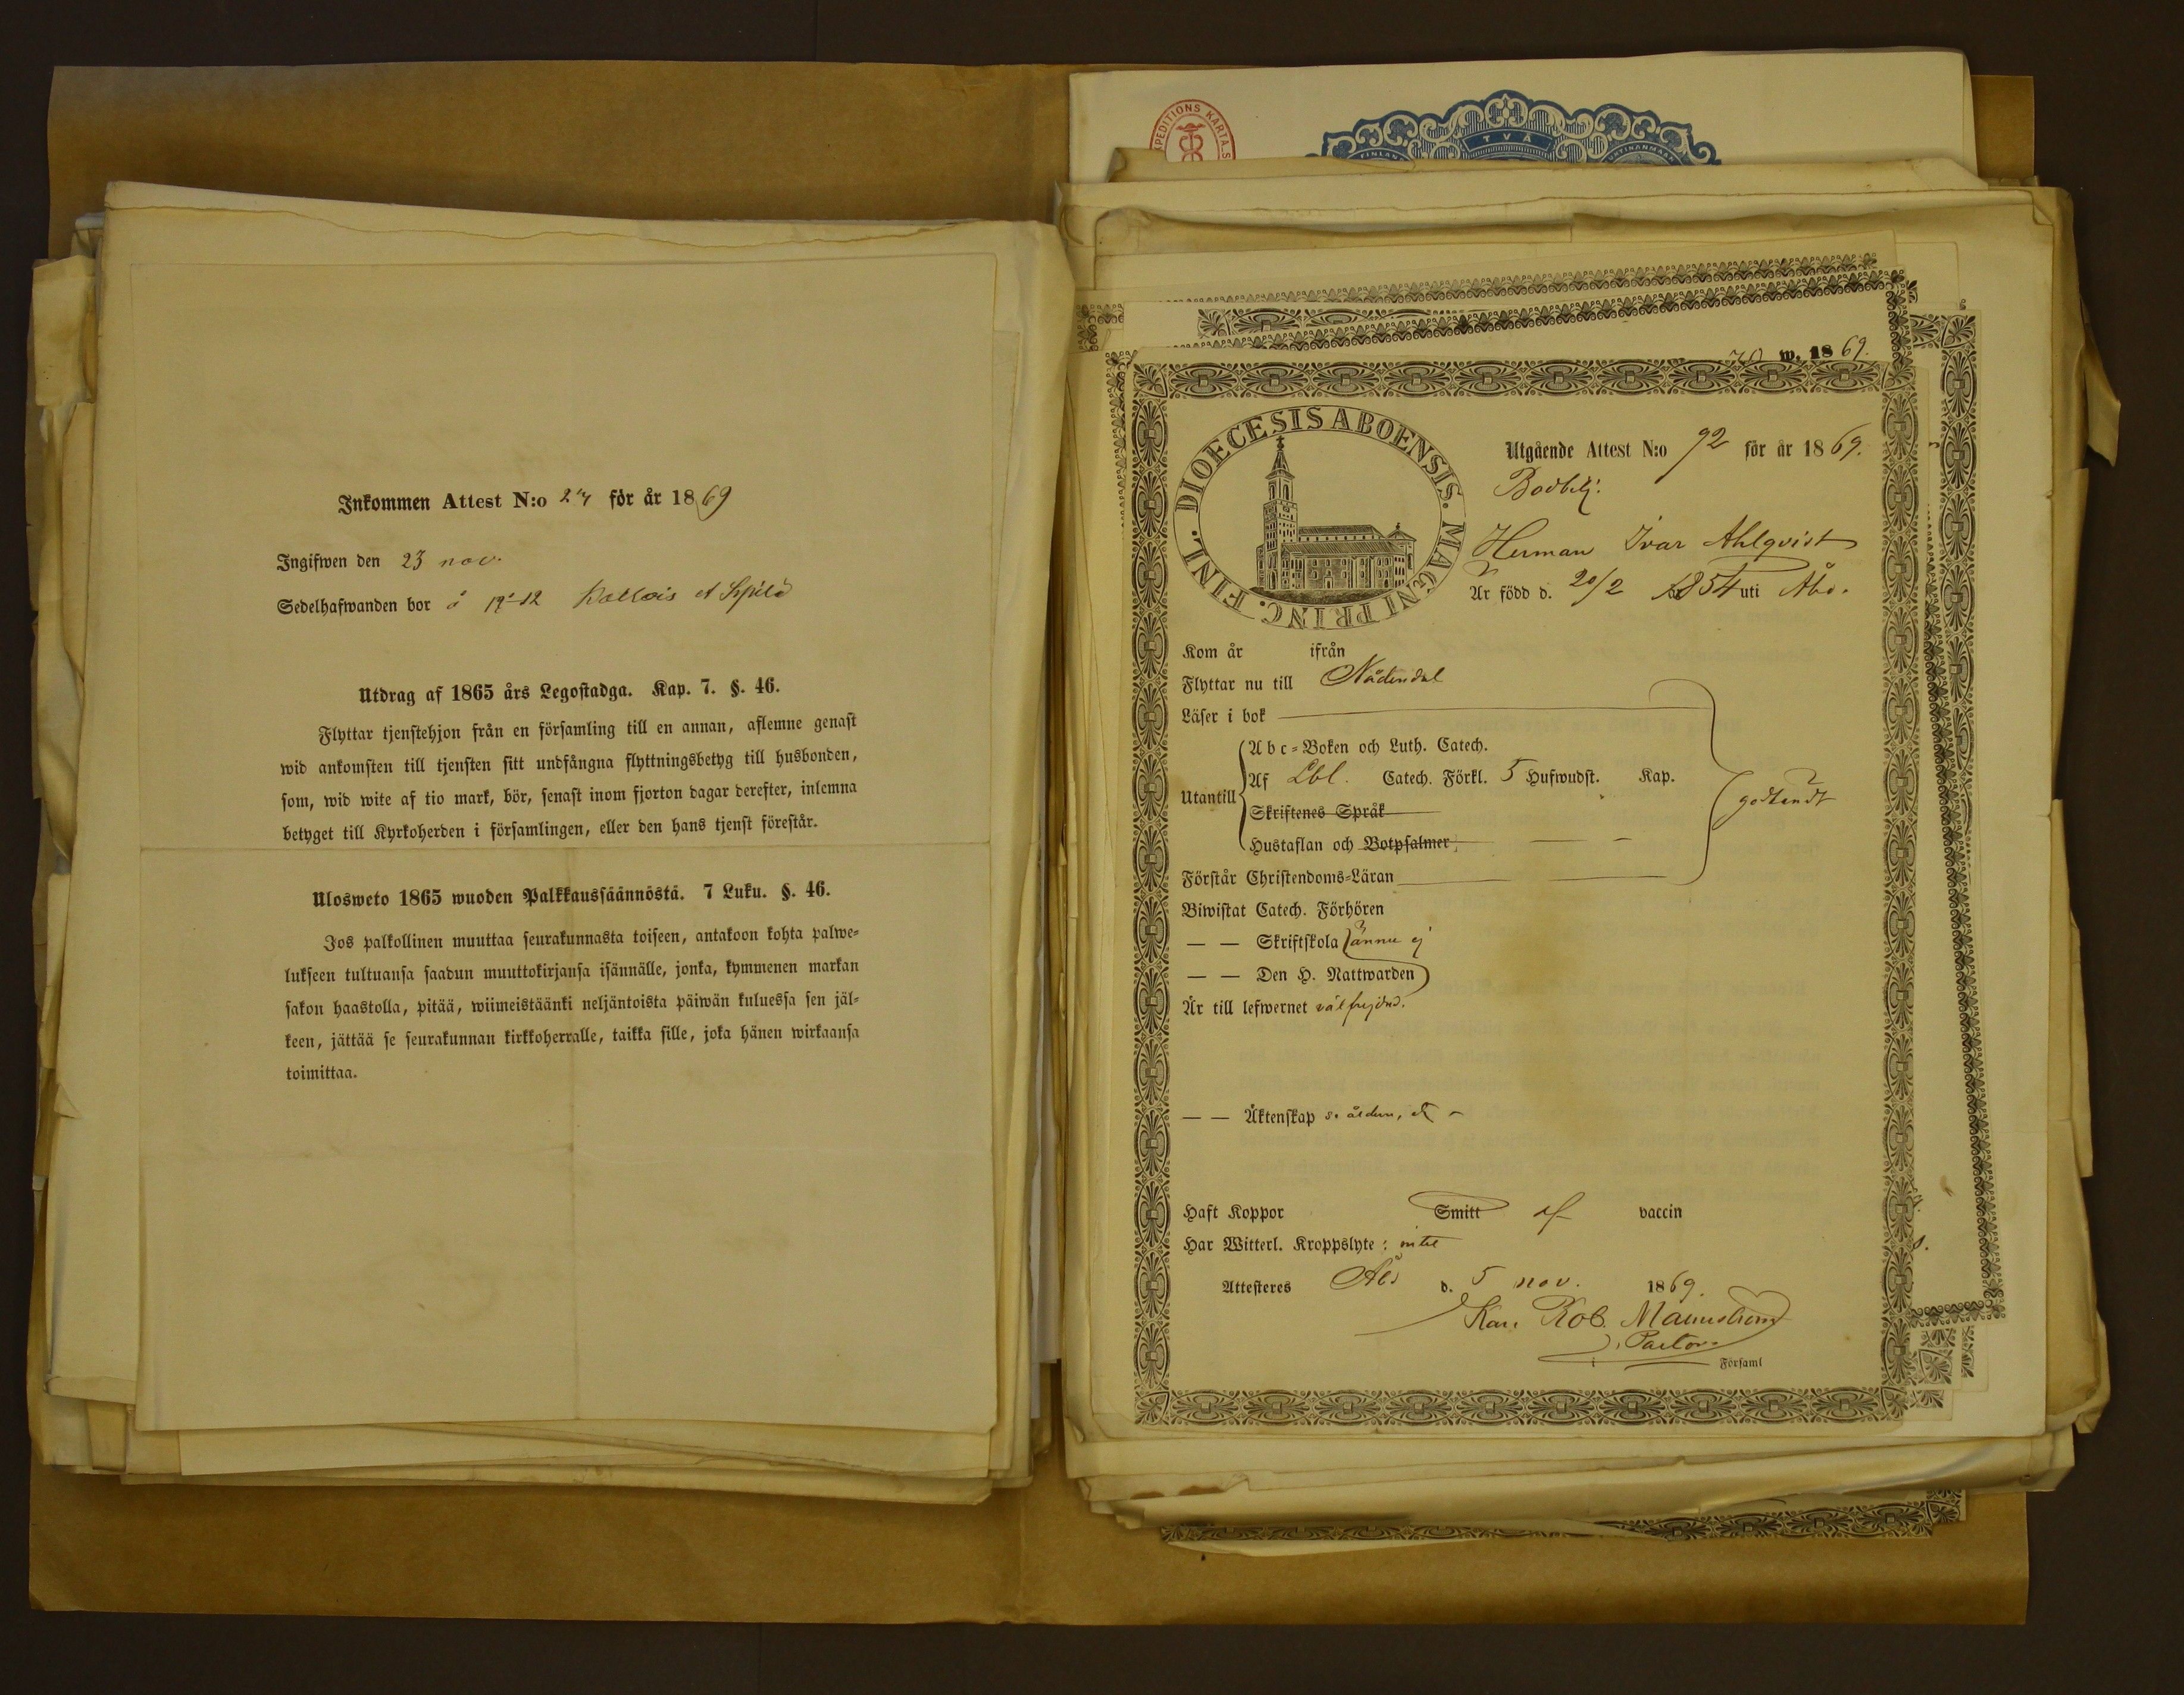 Inkommen Attest N:o 27 för år 1869
Ingifwen den 23 nov.
Sedelhafwanden bor å
Utdrag af 1865 års Legostadga. Kap. 7. §. 46.
Flyttar tjenstehjon från en församling till en annan, aflemne genast
wid ankomsten till tjensten sitt undfångna flyttningsbetyg till husbonden,
som, wid wite af tio mark, bör, senast inom fjorton dagar derefter, inlemna
betyget till Kyrkoherden i församlingen, eller den hans tjenst förestår.
Ulosweto 1865 wuoden Palkkaussäännöstä. 7 Luku. §. 46.
Jos palkollinen muuttaa seurakunnasta toiseen, antakoon kohta palwe-
lukseen tultuansa saadun muuttokirjansa isännälle, jonka, kymmenen markan
sakon haastolla, pitää, wiimeistäänki neljäntoista päiwän kuluessa sen jäl-
keen, jättää se seurakunnan kirkkoherralle, taikka sille, joka hänen wirkaansa
toimittaa.
EXPEDITIONS KARTA.S
TVÅ
w. 1869.
DIOECESIS ABOENSIS. MAGNI PRINC. FINL.
Utgående Attest N:o 92 för år 1869.
Bodbetj.
Herman Ivar Ahlqvist
Är född d. 20/2 1854 uti Åbo.
Kom år ifrån
Flyttar nu till Nådendal
Läser i bok
Utantill
Abc-Boken och Luth. Catech.
Af Lbl. Catech. Förkl. 5 Hufwudst. Kap.
Skriftenes Språk
Hustaflan och Botpsalmer
godkändt
Förstår Christendoms-Läran
Biwistat Catech. Förhören
— — Skriftskola ännu ej
— — Den H. Nattwarden
Är till lefwernet välfrejdad.
— — Äktenskap
Haft Koppor Smitt af vaccin
Har Witterl. Kroppslyte: intet
Attesteres Åbo d. 5 nov. 1869.
Rob.
Pastor
Församl